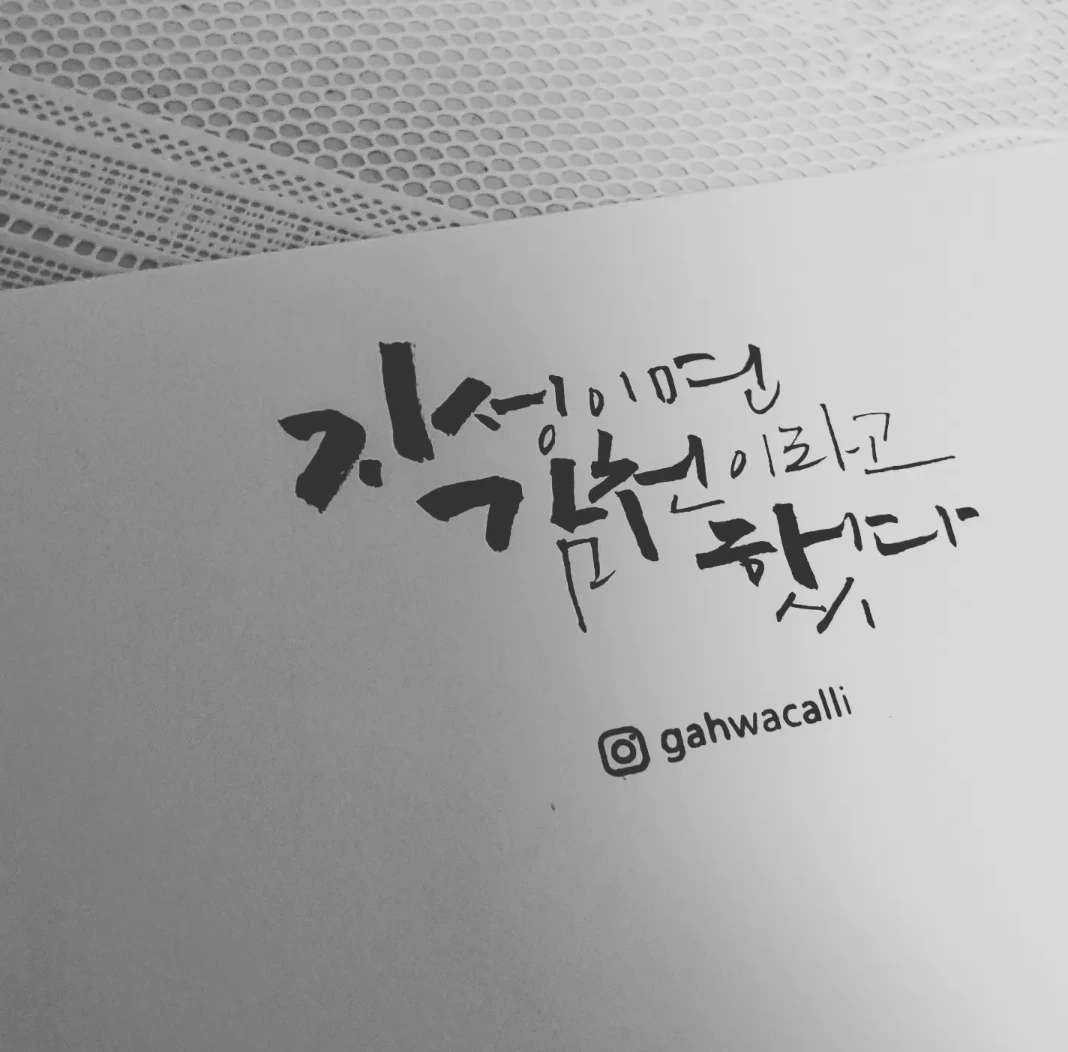 지성이면
감천이라고
했다
gahwacalli